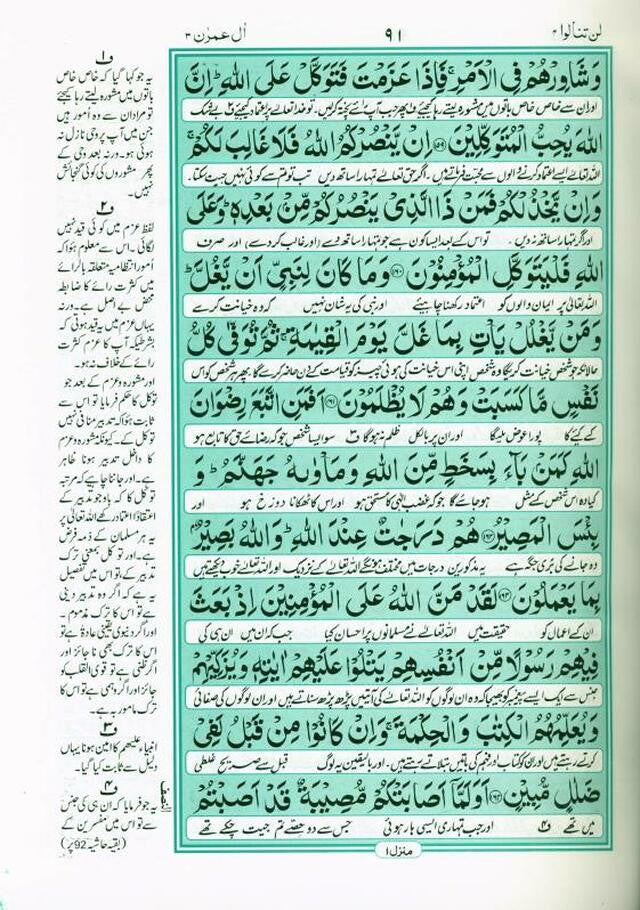 لن تنالوا ۴
۹۱
اٰل عمرٰن ۳
وَشَاوِرْهُمْ فِی الْاَمْرِ ۚ فَاِذَا عَزَمْتَ فَتَوَكَّلْ عَلَی اللهِ ؕ اِنَّ
اور ان سے خاص خاص باتوں میں مشورہ لیتے رہا کیجئے ف۱ پھر جب آپ رائے پختہ کرلیں۔ تو خدا تعالےٰ پر اعتماد کیجئے ف۲ بے شک
اللهَ یُحِبُّ الْمُتَوَكِّلِیْنَ ﴿۱۵۹﴾ اِنْ یَّنْصُرْكُمُ اللهُ فَلَا غَالِبَ لَكُمْ ۚ
اللہ تعالےٰ ایسے اعتماد کرنے والوں سے محبت فرماتے ہیں۔ اگر حق تعالےٰ تمہارا ساتھ دیں تب تو تم سے کوئی نہیں جیت سکتا۔
وَاِنْ یَّخْذُلْكُمْ فَمَنْ ذَا الَّذِیْ یَنْصُرُكُمْ مِّنْۢ بَعْدِهٖ ؕ وَعَلَی
اور اگر تمہارا ساتھ نہ دیں۔ تو اس کے بعد ایسا کون ہے جو تمہارا ساتھ دے (اور غالب کر دے) اور صرف
اللهِ فَلْیَتَوَكَّلِ الْمُؤْمِنُوْنَ ﴿۱۶۰﴾ وَمَا كَانَ لِنَبِیٍّ اَنْ یَّغُلَّ ؕ
اللہ تعالیٰ پر ایمان والوں کو اعتماد رکھنا چاہیئے اور نبی کی یہ شان نہیں کہ وہ خیانت کرے
وَمَنْ یَّغْلُلْ یَاْتِ بِمَا غَلَّ یَوْمَ الْقِیٰمَةِ ۚ ثُمَّ تُوَفّٰی كُلُّ
حالانکہ جو شخص خیانت کریگا وہ شخص اپنی اس خیانت کی ہوئی چیز کو قیامت کے دن حاضر کرے گا پھر ہر شخص کو اس
نَفْسٍ مَّا كَسَبَتْ وَهُمْ لَا یُظْلَمُوْنَ ﴿۱۶۱﴾ اَفَمَنِ اتَّبَعَ رِضْوَانَ
کے کئے کا پورا عوض ملیگا اور ان پر بالکل ظلم نہ ہوگا ف۳ سو ایسا شخص جو کہ رضائے حق کا تابع ہو
اللهِ كَمَنْۢ بَآءَ بِسَخَطٍ مِّنَ اللهِ وَمَاْوٰىهُ جَهَنَّمُ ؕ وَ
کیا وہ اس شخص کے مثل ہو جائے گا جو کہ غضب الٰہی کا مستحق ہو اور اس کا ٹھکانا دوزخ ہو اور
بِئْسَ الْمَصِیْرُ ﴿۱۶۲﴾ هُمْ دَرَجٰتٌ عِنْدَ اللهِ ؕ وَاللهُ بَصِیْرٌۢ
وہ جانے کی بُری جگہ ہے یہ مذکورین درجات میں مختلف ہونگے اللہ تعالےٰ کے نزدیک اور اللہ تعالےٰ خوب دیکھتے ہیں
بِمَا یَعْمَلُوْنَ ﴿۱۶۳﴾ لَقَدْ مَنَّ اللهُ عَلَی الْمُؤْمِنِیْنَ اِذْ بَعَثَ
ان کے اعمال کو حقیقت میں اللہ تعالےٰ نے مسلمانوں پر احسان کیا جب کہ ان میں ان ہی کی
فِیْهِمْ رَسُوْلًا مِّنْ اَنْفُسِهِمْ یَتْلُوْا عَلَیْهِمْ اٰیٰتِهٖ وَیُزَكِّیْهِمْ
جنس سے ایک ایسے پیغمبر کو بھیجا کہ وہ ان لوگوں کو اللہ تعالےٰ کی آیتیں پڑھ پڑھ سناتے ہیں اور ان لوگوں کی صفائی
وَیُعَلِّمُهُمُ الْكِتٰبَ وَالْحِكْمَةَ ۚ وَاِنْ كَانُوْا مِنْ قَبْلُ لَفِیْ
کرتے رہتے ہیں اور ان کو کتاب اور فہم کی باتیں بتلاتے رہتے ہیں۔ اور بالیقین یہ لوگ قبل سے صریح غلطی
ضَلٰلٍ مُّبِیْنٍ ﴿۱۶۴﴾ اَوَلَمَّاۤ اَصَابَتْكُمْ مُّصِیْبَةٌ قَدْ اَصَبْتُمْ
میں تھے ف۴ اور جب تمہاری ایسی ہار ہوئی جس سے دو حصے تم جیت چکے تھے
منزل ۱
ف۱
یہ جو کہا گیا کہ خاص خاص
باتوں میں مشورہ لیتے رہا کیجئے
تو مراد ان سے وہ امور ہیں
جن میں آپ پر وحی نازل نہ
ہوئی ہو۔ ورنہ بعد وحی کے
پھر مشوروں کی کوئی گنجائش
نہیں۔
ف۲
لفظ عزم میں کوئی قید نہیں
لگائی۔ اس سے معلوم ہوا کہ
امور انتظامیہ متعلقہ بالرائے
میں کثرت رائے کا ضابطہ
محض بے اصل ہے۔ ورنہ
یہاں عزم میں یہ قید ہوتی کہ
بشرطیکہ آپ کا عزم کثرت
رائے کے خلاف نہ ہو۔
اور مشورہ و عزم کے بعد جو
توکل کا حکم فرمایا تو اس سے
ثابت ہوا کہ تدبیر منافی نہیں
توکل کے۔ کیونکہ مشورہ و عزم
کا داخل تدبیر ہونا ظاہر
ہے۔ اور جاننا چاہیے کہ مرتبہ
توکل کا کہ باوجود تدبیر کے
اعتقاداً اعتماد رکھے اللہ تعالیٰ پر
یہ ہر مسلمان کے ذمہ فرض
ہے۔ اور توکل بمعنی ترک
تدبیر کے، تو اس میں تفصیل
یہ ہے کہ اگر وہ تدبیر دینی
ہے تو اس کا ترک مذموم۔
اور اگر دنیوی یقینی عادۃً ہے تو
اس کا ترک بھی ناجائز اور
اگر ظنی ہے تو قوی القلب کو
جائز اور اگر وہمی ہے تو اس کا
ترک مامور بہ ہے۔
ف۳
انبیاء علیہم کا امین ہونا یہاں
دلیل سے ثابت کیا گیا۔
ف۴
یہ جو فرمایا کہ ان ہی کی جنس
سے تو اس میں مفسرین کے
(بقیہ حاشیہ 92 پر)